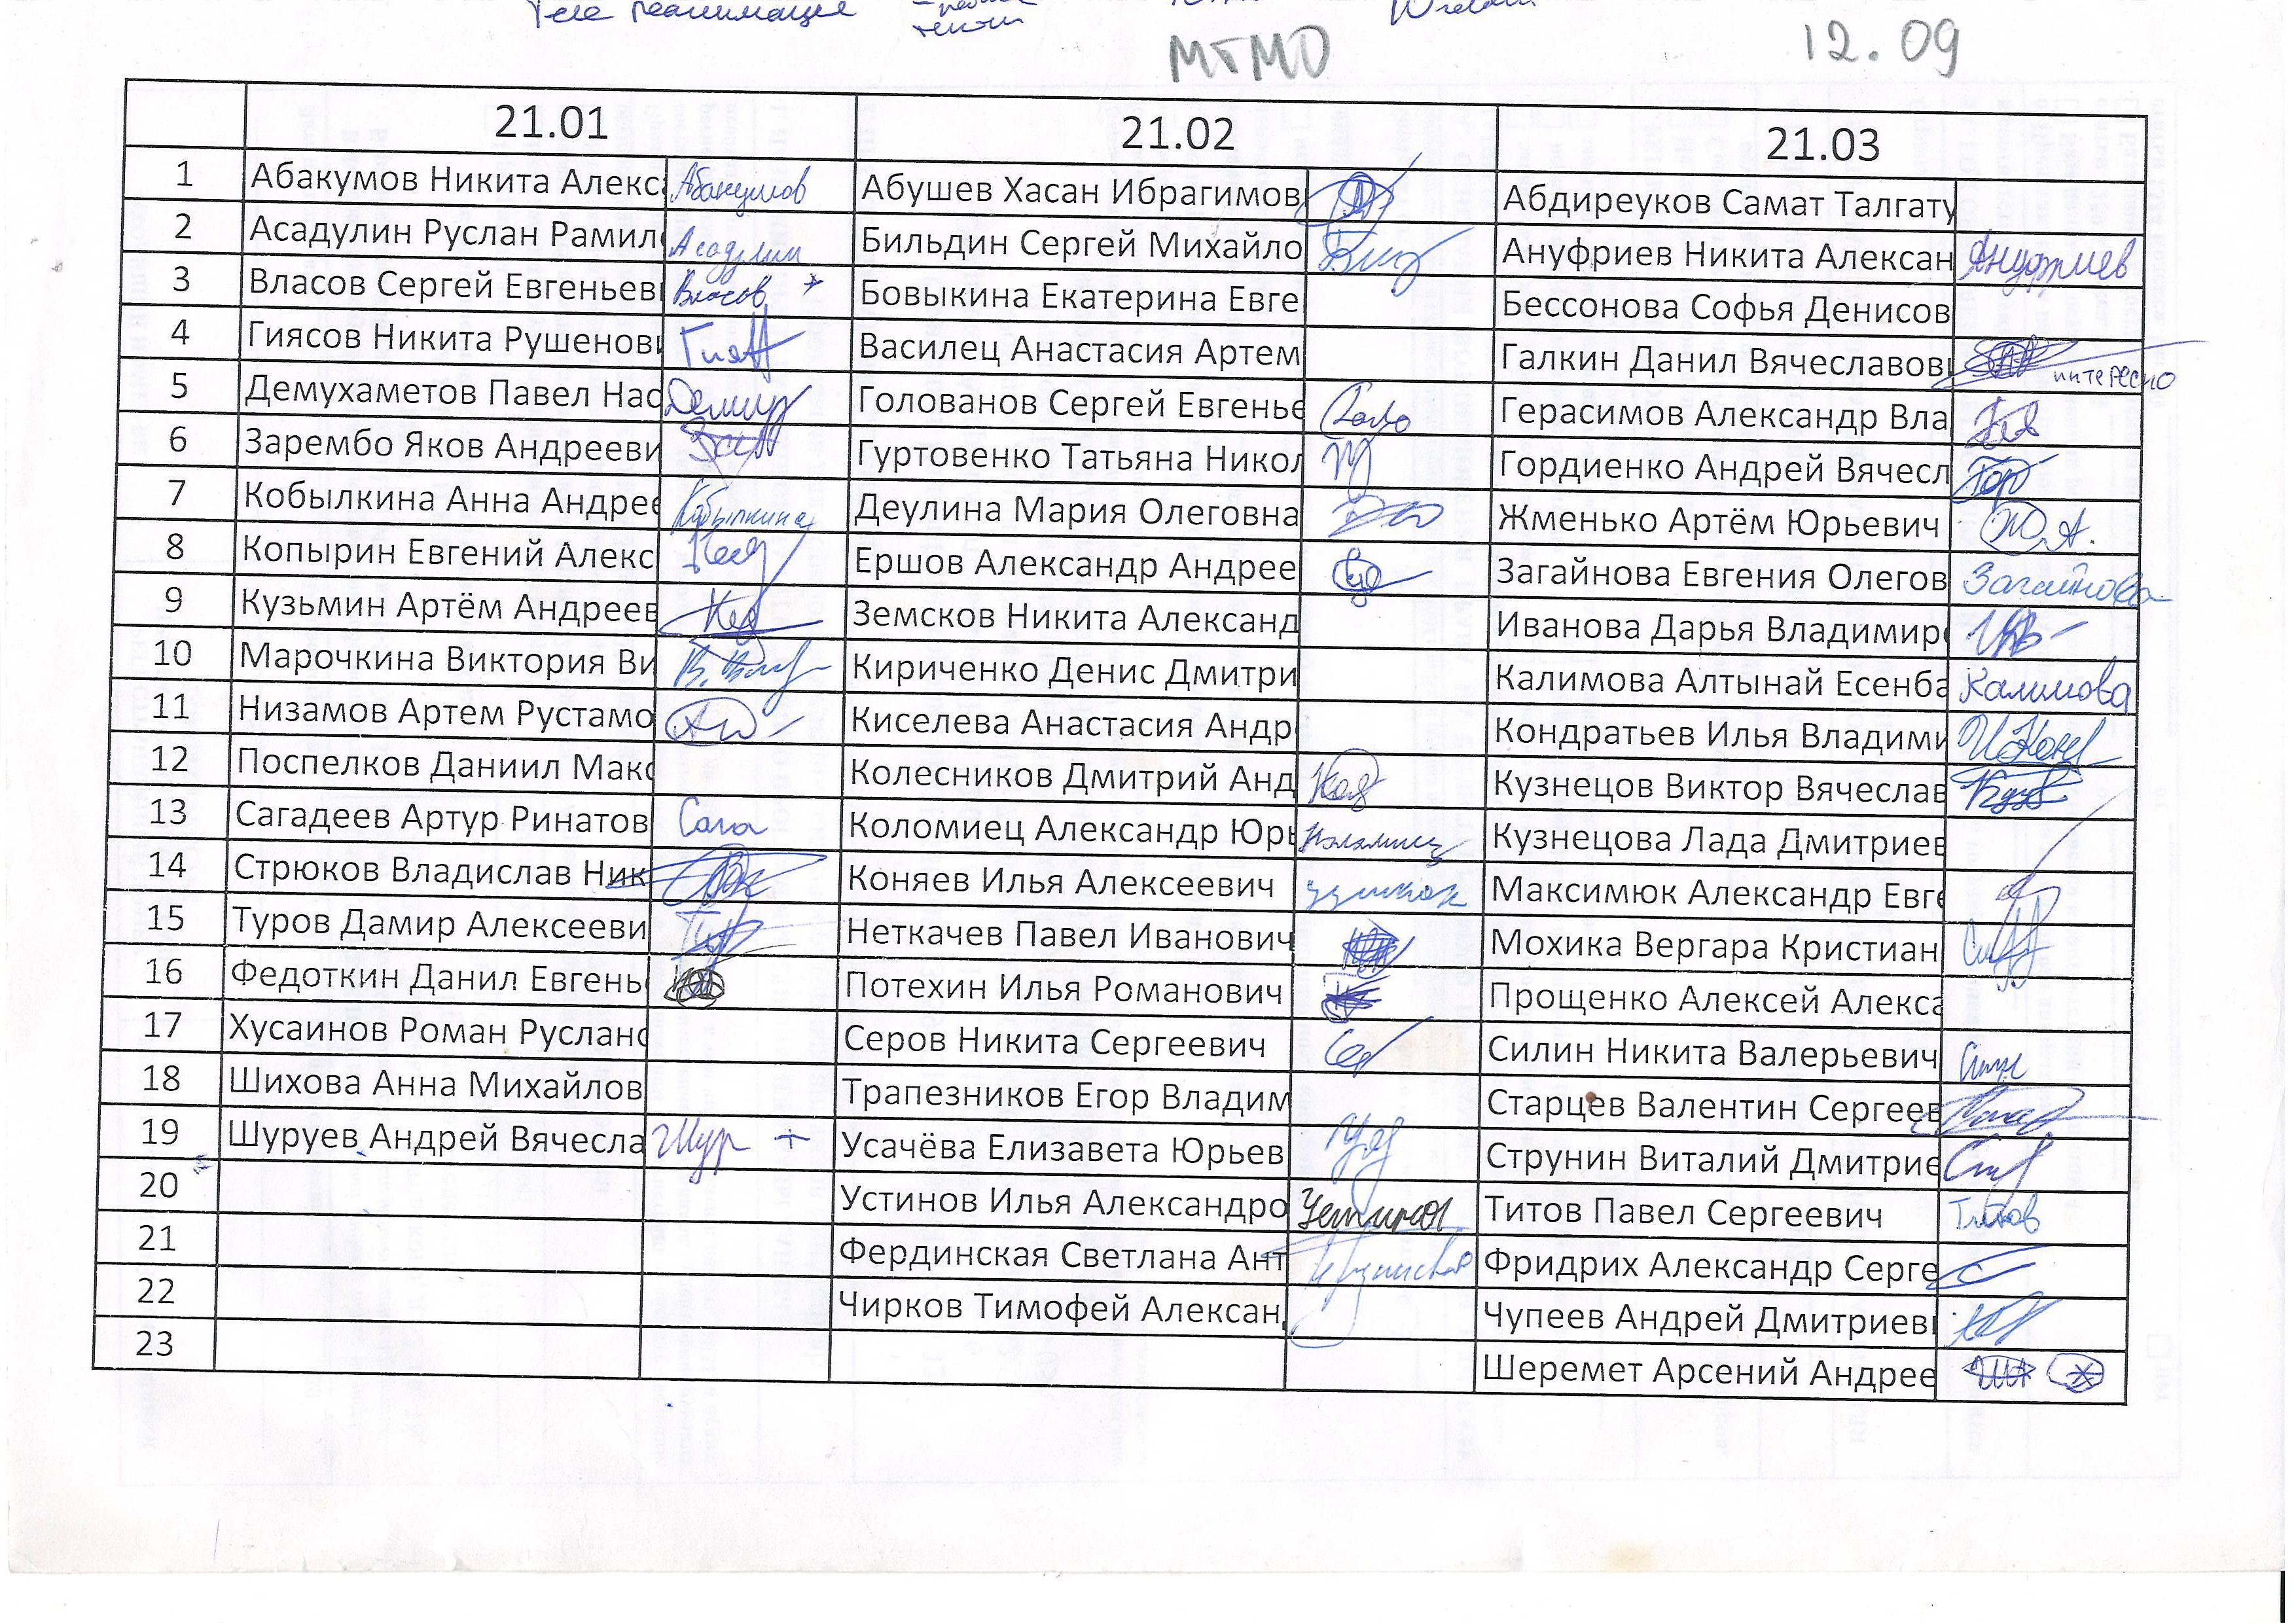 Теле реанимация
МТМО 12.09
21.01 21.02 21.03
1 Абакумов Никита Алекса Абакумов Абушев Хасан Ибрагимов Абдиреуков Самат Талгату
2 Асадулин Руслан Рамил Асадулин Бильдин Сергей Михайло Ануфриев Никита Алексан Ануфриев
3 Власов Сергей Евгеньев Власов + Бовыкина Екатерина Евге Бессонова Софья Денисов
4 Гиясов Никита Рушенов Василец Анастасия Артем Галкин Данил Вячеславов интересно
5 Демухаметов Павел Нас Голованов Сергей Евгенье Голо Герасимов Александр Вла
6 Зарембо Яков Андрееви Гуртовенко Татьяна Никол Гордиенко Андрей Вячесл Гор
7 Кобылкина Анна Андрее Кобылкина Деулина Мария Олеговна Жменько Артём Юрьевич Ж.А.
8 Копырин Евгений Алекс Ершов Александр Андрее Загайнова Евгения Олегов Загайнова
9 Кузьмин Артём Андреев Земсков Никита Александ Иванова Дарья Владимир
10 Марочкина Виктория Ви Кириченко Денис Дмитри Калимова Алтынай Есенба Калимова
11 Низамов Артем Рустамо Киселева Анастасия Андр Кондратьев Илья Владими
12 Поспелков Даниил Мак Колесников Дмитрий Анд Кузнецов Виктор Вячеслав
13 Сагадеев Артур Ринатов Сага Коломиец Александр Юр Коломиец Кузнецова Лада Дмитриев
14 Стрюков Владислав Ник Коняев Илья Алексеевич Максимюк Александр Евге
15 Туров Дамир Алексееви Неткачев Павел Иванович Мохика Вергара Кристиан
16 Федоткин Данил Евгень Потехин Илья Романович Прощенко Алексей Алекса
17 Хусаинов Роман Руслан Серов Никита Сергеевич Силин Никита Валерьевич
18 Шихова Анна Михайлов Трапезников Егор Владим Старцев Валентин Сергеев
19 Шуруев Андрей Вячесла Шур + Усачёва Елизавета Юрьев Струнин Виталий Дмитрие
20 Устинов Илья Александро Устинов Титов Павел Сергеевич Титов
21 Фердинская Светлана Ант Фридрих Александр Серге
22 Чирков Тимофей Алексан Чупеев Андрей Дмитриев
23 Шеремет Арсений Андрее